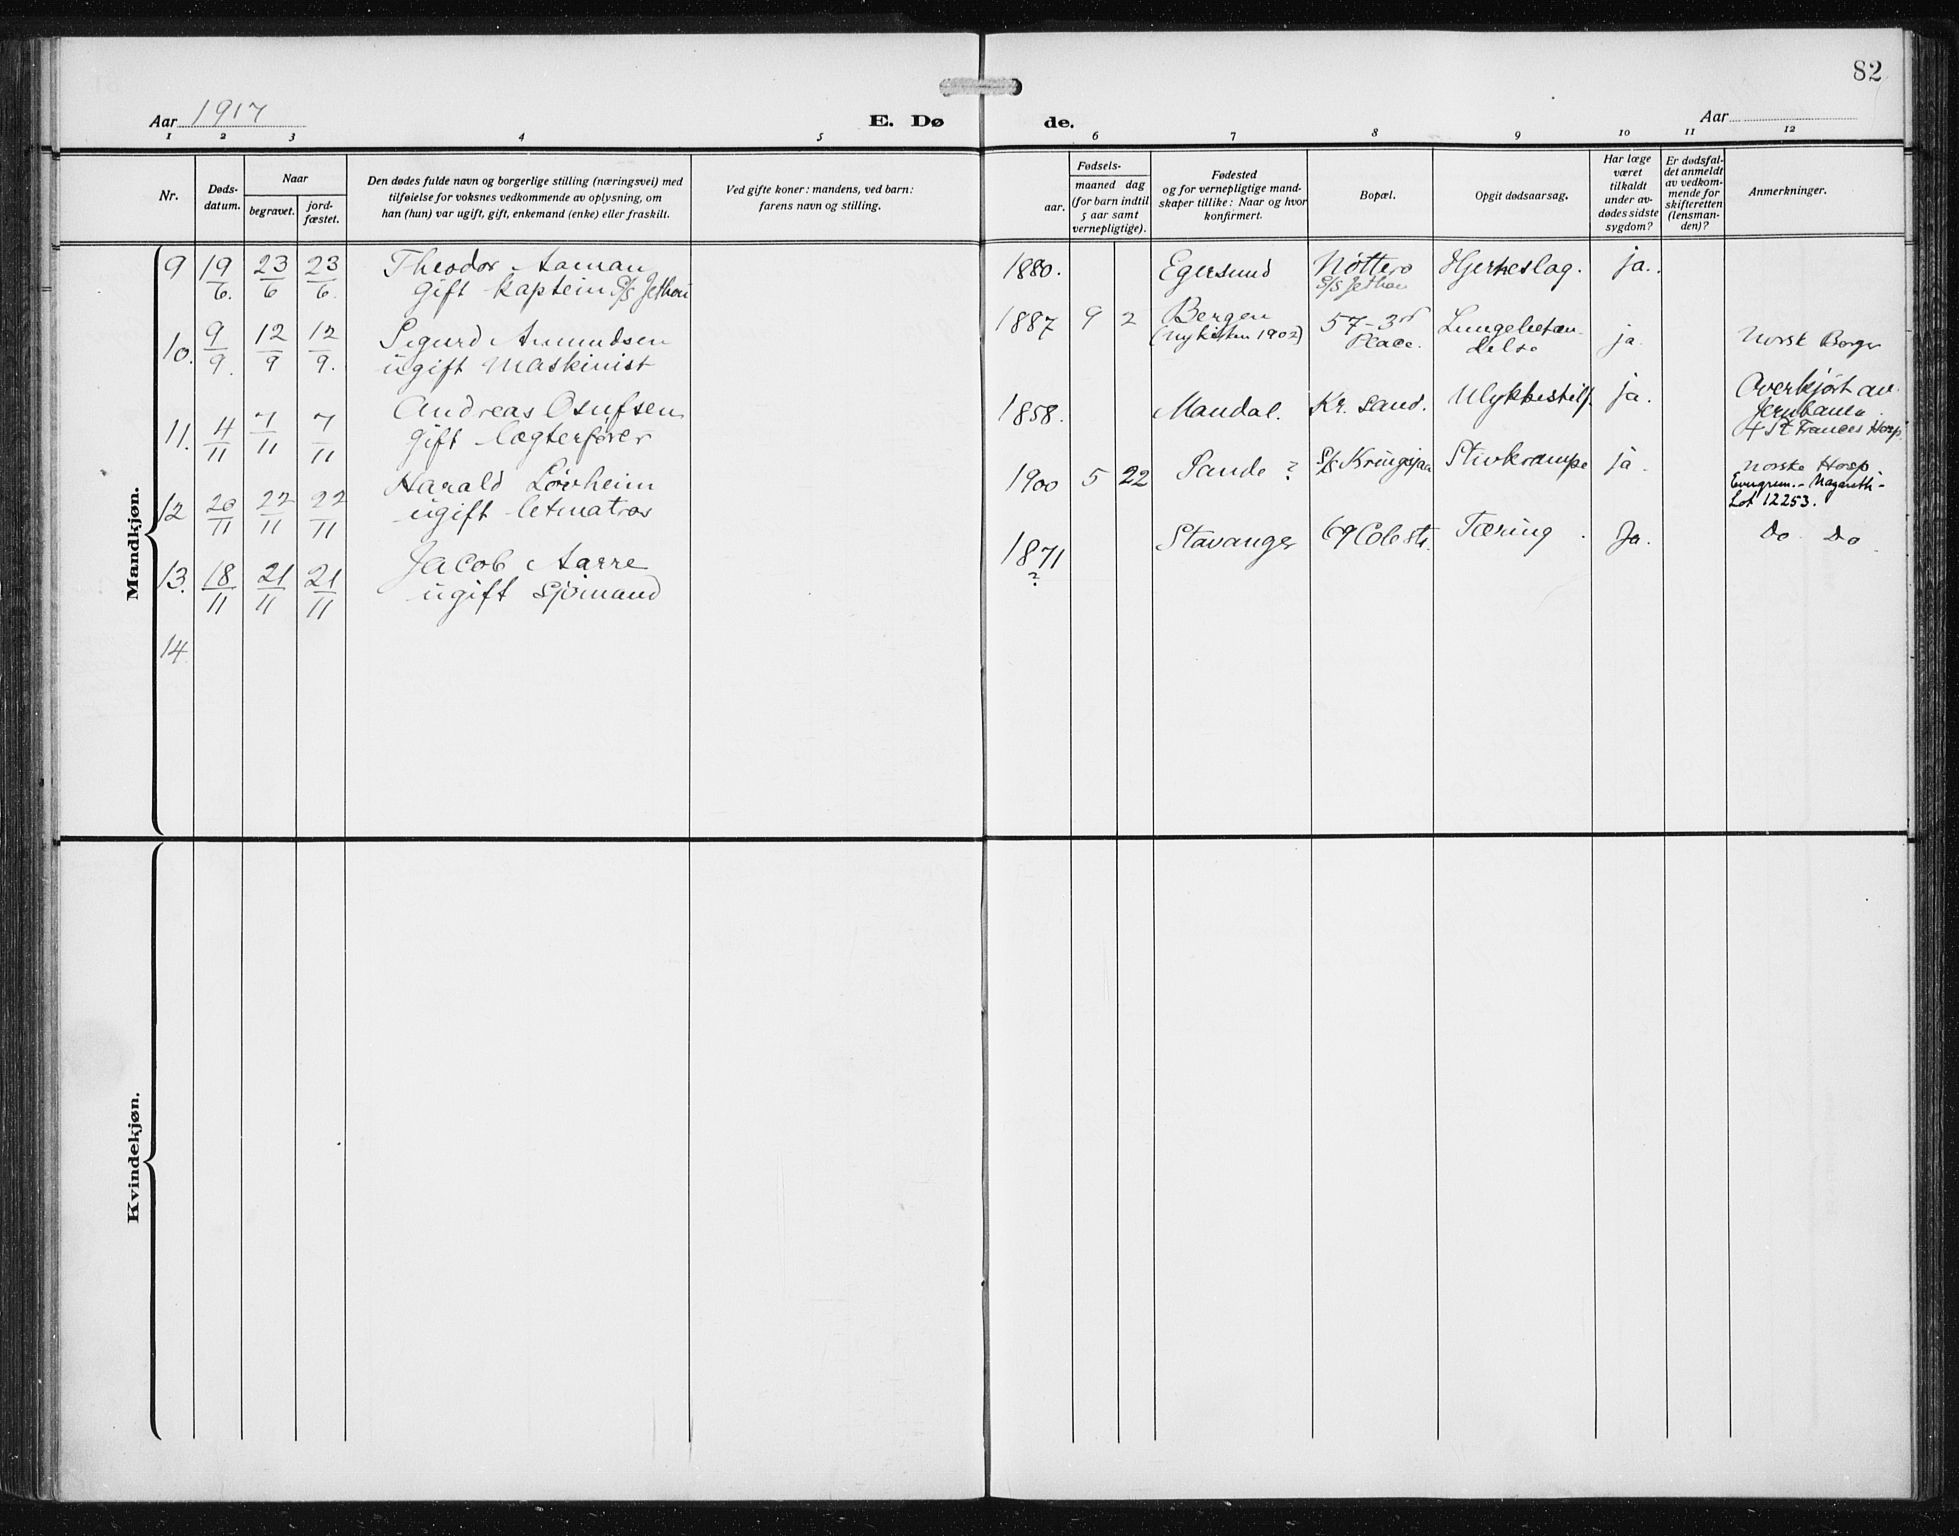 82
Aar 1917
E. Dø
de.
Aar
1 2 3 4 5 6 7 8 9 10 11 12
Nr.
Døds-
datum.
Naar
begravet.
jord-
fæstet.
Den dødes fulde navn og borgerlige stilling (næringsvei) med
tilføielse for voksnes vedkommende av oplysning, om
han (hun) var ugift, gift, enkemand (enke) eller fraskilt.
Ved gifte koner: mandens, ved barn:
farens navn og stilling.
Fødsels-
aar.
maaned dag
(for barn indtil
5 aar samt
vernepligtige).
Fødested
og for vernepligtige mand-
skaper tillike: Naar og hvor
konfirmert.
Bopæl.
Opgit dødsaarsag.
Har læge
været
tilkaldt
under av-
dødes sidste
sygdom?
Er dødsfal-
det anmeldt
av vedkom-
mende for
skifteretten
(lensman-
den)?
Anmerkninger.
Mandkjøn.
9 19/6. 23/6 23/6. Theodor Aaman
gift kaptein S/S Jethou
1880. Egersund Nøtterø
S/S Jethou
Hjerteslag. ja.
10. 9/9. 12/9 12/9. Sigurd Amundsen
ugift Maskinist
1887 9 2 Bergen
(Nykirken 1902)
57-3rd
Place.
Lungebetæn-
delse
ja.
Norsk Borger
11. 4/11 7/11 7/11 Andreas Osufsen
gift lægterfører
1858. Mandal. Kr. sand. Ulykkestilf. ja.
Overkjørt av
Jernbanen.
+ St Frances Hosp.
12 20/11 22/11 22/11 Harald Løvheim
ugift letmatros
1900 5 22 Sande? S/S Kringsjaa Stivkrampe ja.
Norske Hosp.
Evergreen. - Nazareth -
Lot 12253.
13. 18/11 21/11 21/11 Jacob Aarre
ugift Sjømand
1871
?
Stavanger 69 Cole str. Tæring. Ja.
Do. Do.
14.
Kvindekjøn.